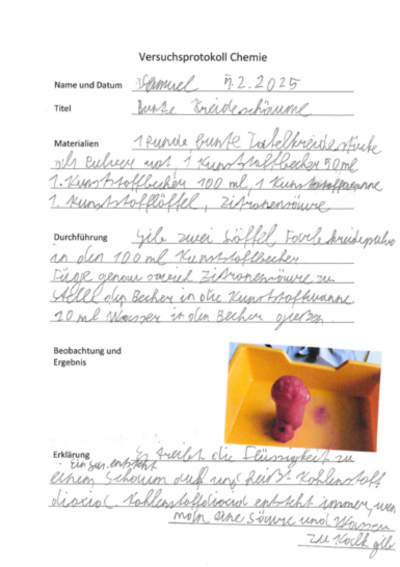 Versuchsprotokoll Chemie
Name und Datum Samuel 7.2.2025
Titel Bunte Kreideschäume
Materialien 1 Runde, bunte Tafelkreidestücke
als Pulver rot, 1 Kunststoffbecher 50ml
1. Kunststoffbecher 100 ml, 1 Kunststoffwanne
1. Kunststofflöffel, Zitronensäure
Durchführung Gib zwei Löffel
in den 100ml Kunststoffbecher
Füge genau soviel Zitronensäure zu
Stell den Becher in die Kunststoffwanne
20 ml Wasser in den Becher gießen
Beobachtung und
Ergebnis
Erklärung Es treibt die Flüssigkeit zu
Ein Gas entsteht
einem Schaum auf und heißt Kohlenstoff
dioxid. Kohlenstoffdioxid entsteht immer, wen
man eine Säure und Wasser
zu Kalk gibt